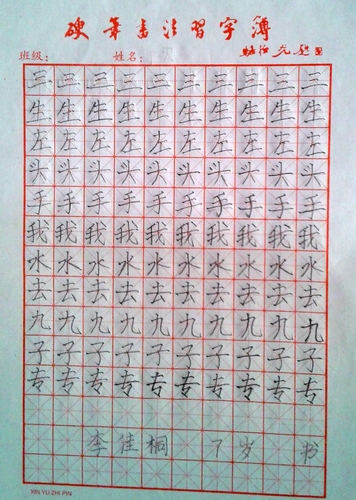 硬笔书法习字簿
班级： 姓名：
三三三三三三三三三三
生生生生生生生生生生
左左左左左左左左左左
头头头头头头头头头头
手手手手手手手手手手
我我我我我我我我我我
水水水水水水水水水水
去去去去去去去去去去
九九九九九九九九九九
子子子子子子子子子子
专专专专专专专专专专
李佳桐 7岁 书
XIN YU ZHI PIN